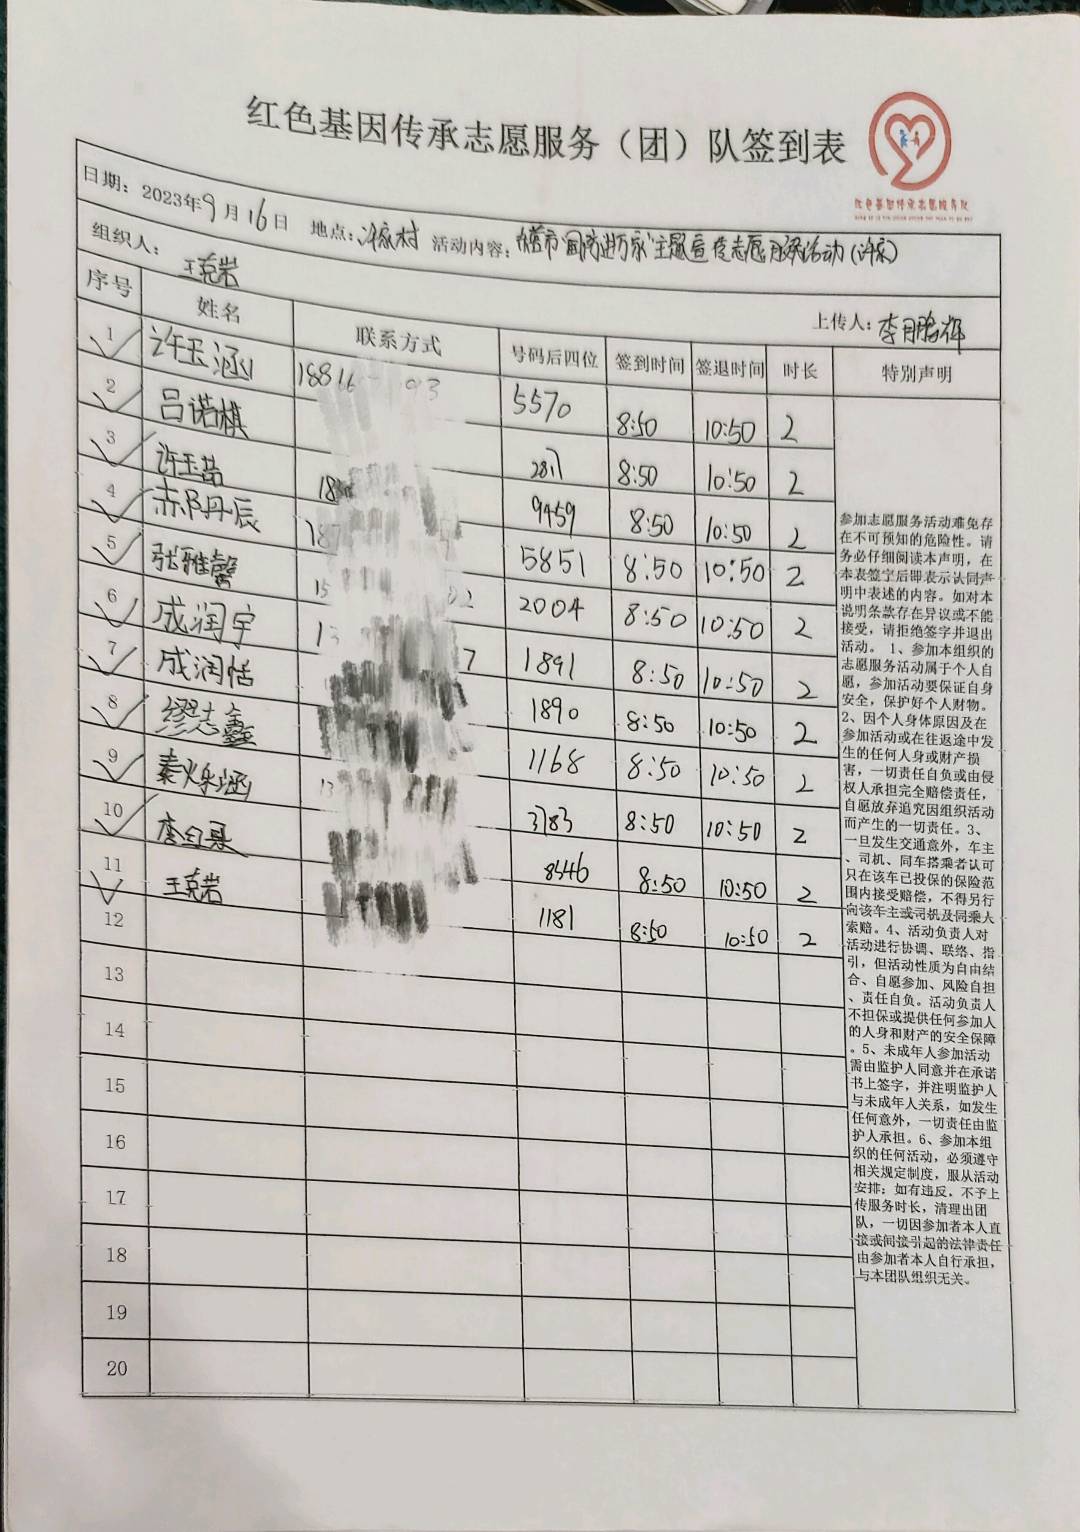 红色基因传承志愿服务（团）队签到表
红色基因传承志愿服务队
日期：2023年9月16日 地点：许家村 活动内容：主题宣传志愿服务活动(许家)
组织人：王克岩
上传人：李月鹏辉
序号 姓名 联系方式 号码后四位 签到时间 签退时间 时长 特别声明
1 许玉涵 5570 8:50 10:50 2
2 吕诺棋 2817 8:50 10:50 2
3 许玉茹 9459 8:50 10:50 2
4 郝丹辰 5851 8:50 10:50 2
5 张雅馨 2004 8:50 10:50 2
6 成润宇 1891 8:50 10:50 2
7 成润恬 1890 8:50 10:50 2
8 缪志鑫 1168 8:50 10:50 2
9 秦烁涵 3783 8:50 10:50 2
10 8546 8:50 10:50 2
11 王克岩 1181 8:50 10:50 2
12
13
14
15
16
17
18
19
20
参加志愿服务活动难免存
在不可预知的危险性。请
务必仔细阅读本声明，在
本表签字后即表示认同声
明中表述的内容。如对本
说明条款存在异议或不能
接受，请拒绝签字并退出
活动。 1、参加本组织的
志愿服务活动属于个人自
愿，参加活动要保证自身
安全，保护好个人财物。
2、因个人身体原因及在
参加活动或在往返途中发
生的任何人身或财产损
害，一切责任自负或由侵
权人承担完全赔偿责任，
自愿放弃追究因组织活动
而产生的一切责任。3、
一旦发生交通意外，车主
、司机、同车搭乘者认可
只在该车已投保的保险范
围内接受赔偿，不得另行
向该车主或司机及同乘人
索赔。4、活动负责人对
活动进行协调、联络、指
引，但活动性质为自由结
合、自愿参加、风险自担
、责任自负。活动负责人
不担保或提供任何参加人
的人身和财产的安全保障
。5、未成年人参加活动
需由监护人同意并在承诺
书上签字，并注明监护人
与未成年人关系，如发生
任何意外，一切责任由监
护人承担。6、参加本组
织的任何活动，必须遵守
相关规定制度，服从活动
安排；如有违反，不予上
传服务时长，清理出团
队，一切因参加者本人直
接或间接引起的法律责任
由参加者本人自行承担，
与本团队组织无关。